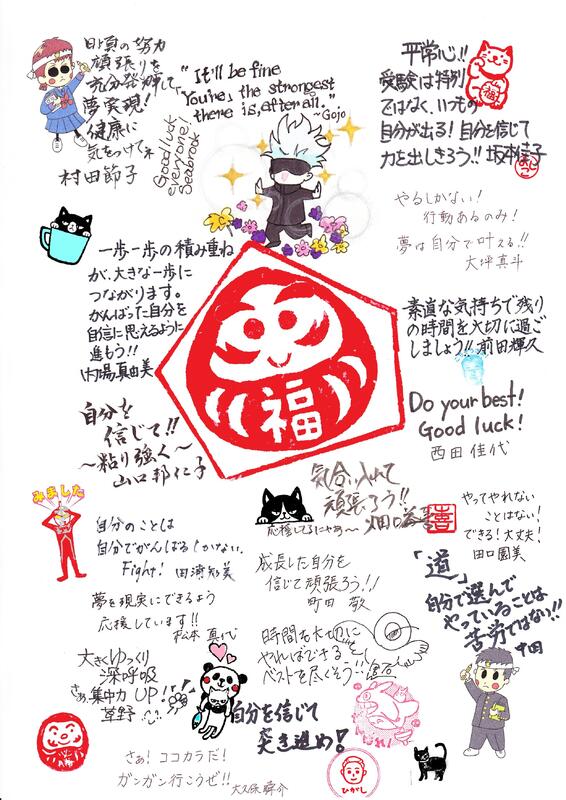 日頃の努力
頑張りを
充分発揮して
夢実現!
健康に
気をつけてネ
村田節子
"It'll be fine
You're the strongest
there is, after all."
~Gojo
Good luck
everyone,
Seabrook
平常心!!
受験は特別
ではなく、いつもの
自分が出る!自分を信じて
力を出しきろう!! 坂本佳子
やるしかない!
行動あるのみ!
夢は自分で叶える!!
大坪真斗
一歩一歩の積み重ね
が、大きな一歩に
つながります。
がんばった自分を
自信に思えるように
進もう!!
内場真由美
福
素直な気持ちで残り
の時間を大切に過ご
しましょう!! 前田輝久
Do your best!
Good luck!
西田佳代
自分を
信じて!!
~粘り強く~
山口邦仁子
気合い入れて
頑張ろう!!
応援してるにゃあ~
喜
やってやれない
ことはない!
できる!大丈夫!
田口園美
みました
自分のことは
自分でがんばるしかない。
Fight!
成長した自分を
信じて頑張ろう!!
町田 敬
「道」
自分で選んで
やっていることは
苦労ではない!!
中田
夢を現実にできるよう
応援しています!!
松本真代
時間を大切に
やればできる
ベストを尽くそう!!
大きくゆっくり
深呼吸
さぁ、集中力UP!!
草野
自分を信じて
突き進め!
さぁ!ココカラだ!
ガンガン行こうぜ!!
ひがし